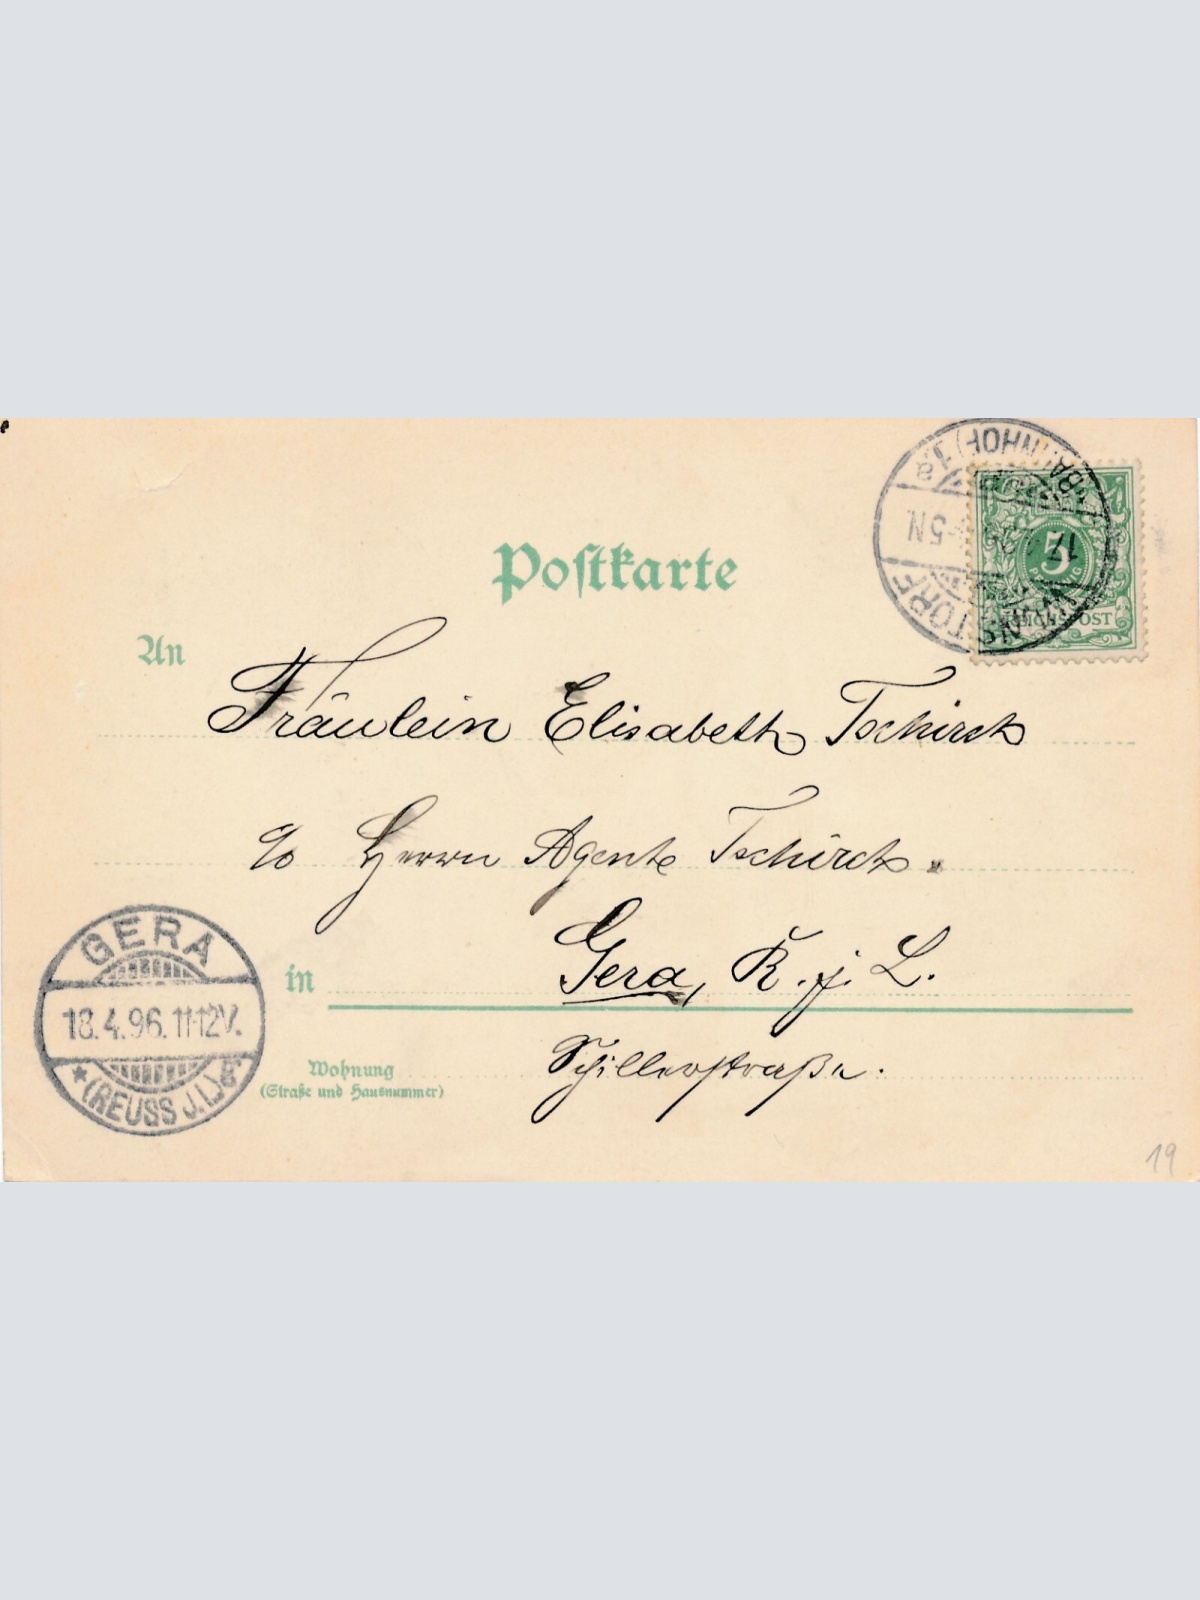 Postkarte
5
PFENNIG
REICHSPOST
(BAHNHOF) 1.a
4-5N
An
Fräulein Elisabeth Tschirch
c/o Herrn Agente Tschirch.
in Gera, R. j. L.
Wohnung Schillerstraße.
(Straße und Hausnummer)
GERA
18.4.96.11-12V.
*(REUSS J.L.)g*
19